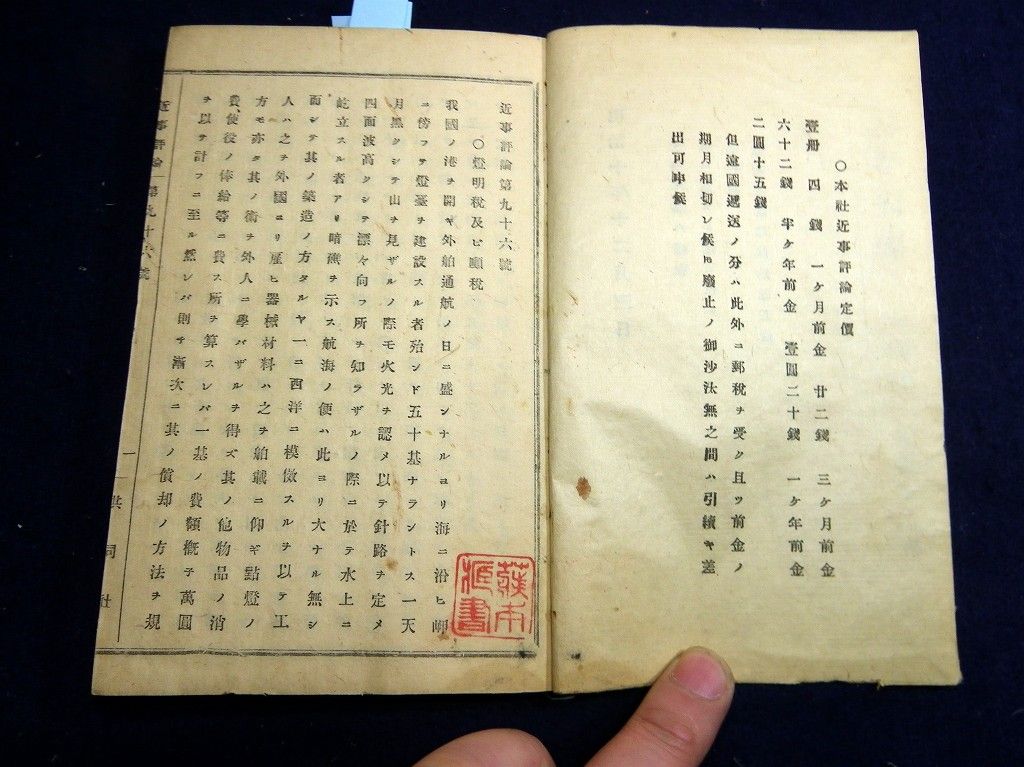 ○本社近事評論定價
壹册 四錢 一ケ月前金 廿二錢 三ケ月前金
六十二錢 半ケ年前金 壹圓二十錢 一ケ年前金
二圓十五錢
但遠國遞送ノ分ハ此外ニ郵税ヲ受ク且ツ前金ノ
期月相切レ候トモ廢止ノ御沙汰無之間ハ引續キ差
出可申候
近事評論第九十六號
○燈明税及ヒ願税
我國ノ港ヲ開キ外舶通航ノ日ニ盛ンナルヨリ海ニ沿ヒ岬
ニ傍フテ燈臺ヲ建設スル者殆ンド五十基ナラントス一天
月黑クシテ山ヲ見ザルノ際モ火光ヲ認メ以テ針路ヲ定メ
四面波高クシテ漂々向フ所ヲ知ラザルノ際ニ於テ水上ニ
屹立スル者アリ暗礁ヲ示ス航海ノ便ハ此ヨリ大ナル無シ
而シテ其ノ築造ノ方タルヤ一ニ西洋ニ模倣スルヲ以テ工
人ハ之ヲ外國ニリ雇ヒ器械材料ハ之ヲ舶載ニ仰ギ點燈ノ
方モ亦タ其ノ術ヲ外人ニ學バザルヲ得ズ其ノ他物品ノ消
費、使役ノ俸給等ニ費ス所ヲ算スレバ一基ノ費額概子萬圓
ヲ以テ計フニ至ル然レバ則チ漸次ニ其ノ償却ノ方法ヲ規
近事評論 第九十六號 一 共同社
藏書